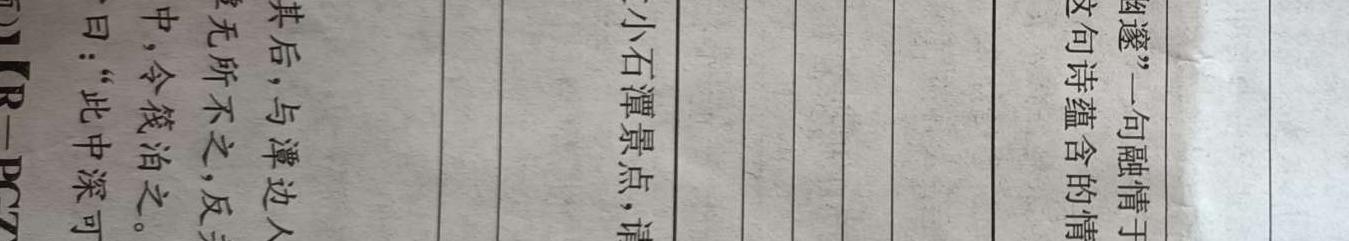 幽邃”一句融情于
这句诗蕴含的情
小石潭景点,请
其后,与潭边人
无所不之,反
中,令筏泊之。
曰:“此中深可
)】【R—PGZ